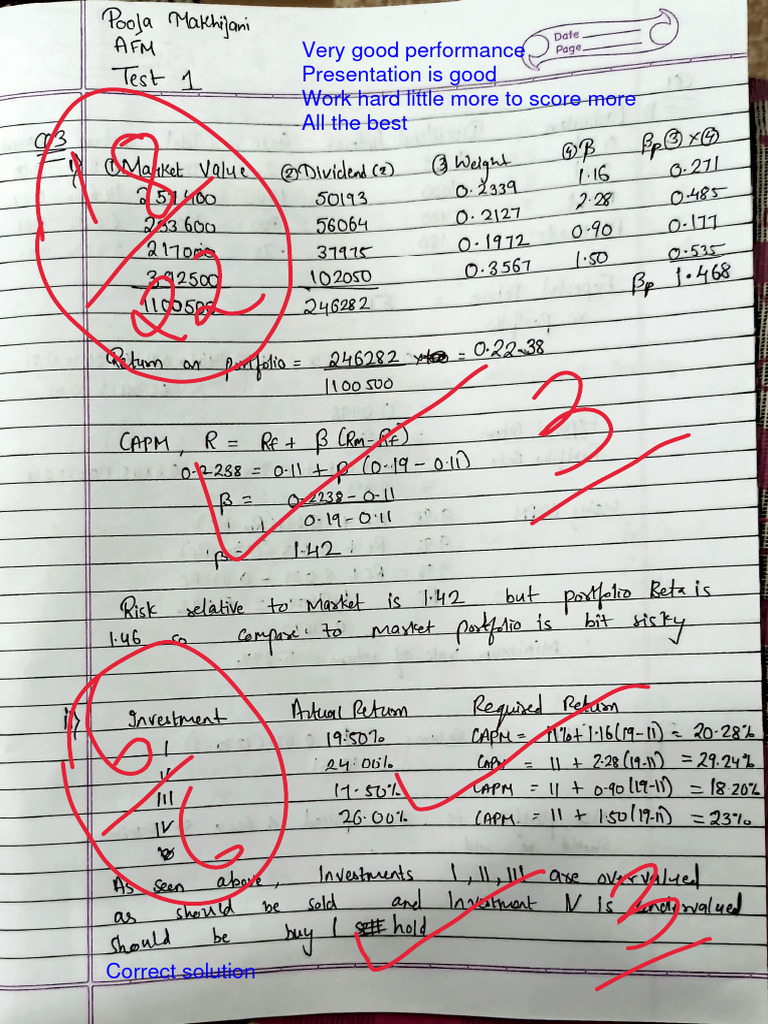 Pooja Makhijani
AFM
Test 1
Date
Page
Very good performance
Presentation is good
Work hard little more to score more
All the best
Q3
18/22
i) ① Market Value ② Dividend (2) ③ Weight ④ β βp ③ × ④
257400 50193 0.2339 1.16 0.271
233600 56064 0.2127 2.28 0.485
217000 37975 0.1972 0.90 0.177
392500 102050 0.3567 1.50 0.535
1100500 246282 βp 1.468
Return on portfolio = 246282 = 0.22.38
1100500
3
CAPM, R = Rf + β (Rm - Rf)
0.2238 = 0.11 + β (0.19 - 0.11)
β = 0.2238 - 0.11
0.19 - 0.11
β = 1.42
Risk relative to Market is 1.42 but portfolio Beta is
1.46 so compare to market portfolio is bit risky
6/6
ii) Investment Actual Return Required Return
I 19.50% CAPM = 11% + 1.16 (19-11) = 20.28%
II 24.00% CAPM = 11 + 2.28 (19-11) = 29.24%
III 17.50% CAPM = 11 + 0.90 (19-11) = 18.20%
IV 26.00% CAPM = 11 + 1.50 (19-11) = 23%
As seen above, Investments I, II, III are overvalued
as should be sold and Investment IV is undervalued
should be buy / hold
3
Correct solution